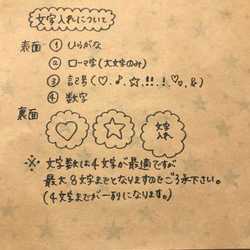 文字入れについて
表面 ① ひらがな
② ローマ字(大文字のみ)
③ 記号(♡.♪.☆.!!.!.♡.。.&)
④ 数字
裏面
文字入れ
※ 文字数は4文字が最適ですが
最大8文字までとなりますのでご了承下さい。
(4文字までが一列になります。)